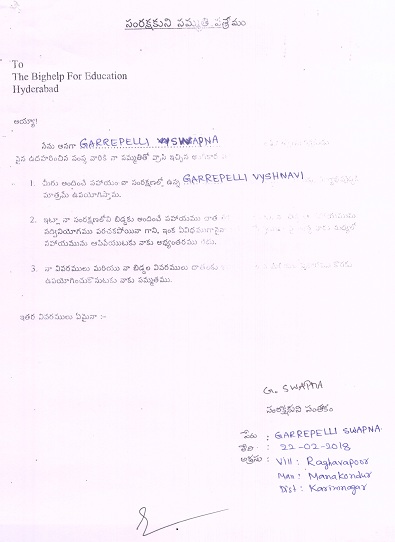 సంరక్షకుని సమ్మతి పత్రము
To
The Bighelp For Education
Hyderabad
అయ్యా!
నేను అనగా GARREPELLI SWAPNA
పైన ఉదహరించిన సంస్థ వారికి నా సమ్మతితో వ్రాసి ఇచ్చిన
1. మీరు అందించే సహాయం నా సంరక్షణలో ఉన్న GARREPELLI VYSHNAVI
మాత్రమే ఉపయోగిస్తాను.
2. ఇట్లా నా సంరక్షణలోని బిడ్డకు అందించే సహాయము
సద్వినియోగము పరచకపోయినా గాని, ఇంక ఏవిధముగానైనా
సహాయమును ఆపివేయుటకు నాకు అభ్యంతరము లేదు.
3. నా వివరములు మరియు నా బిడ్డల వివరములు
ఉపయోగించుకొనుటకు నాకు సమ్మతము.
ఇతర వివరములు ఏమైనా :-
G. SWAPNA
సంరక్షకుని సంతకం
పేరు : GARREPELLI SWAPNA
తేది : 22-02-2018
Vill : Raghavapoor
Man : Manakondur
Dist : Karimnagar